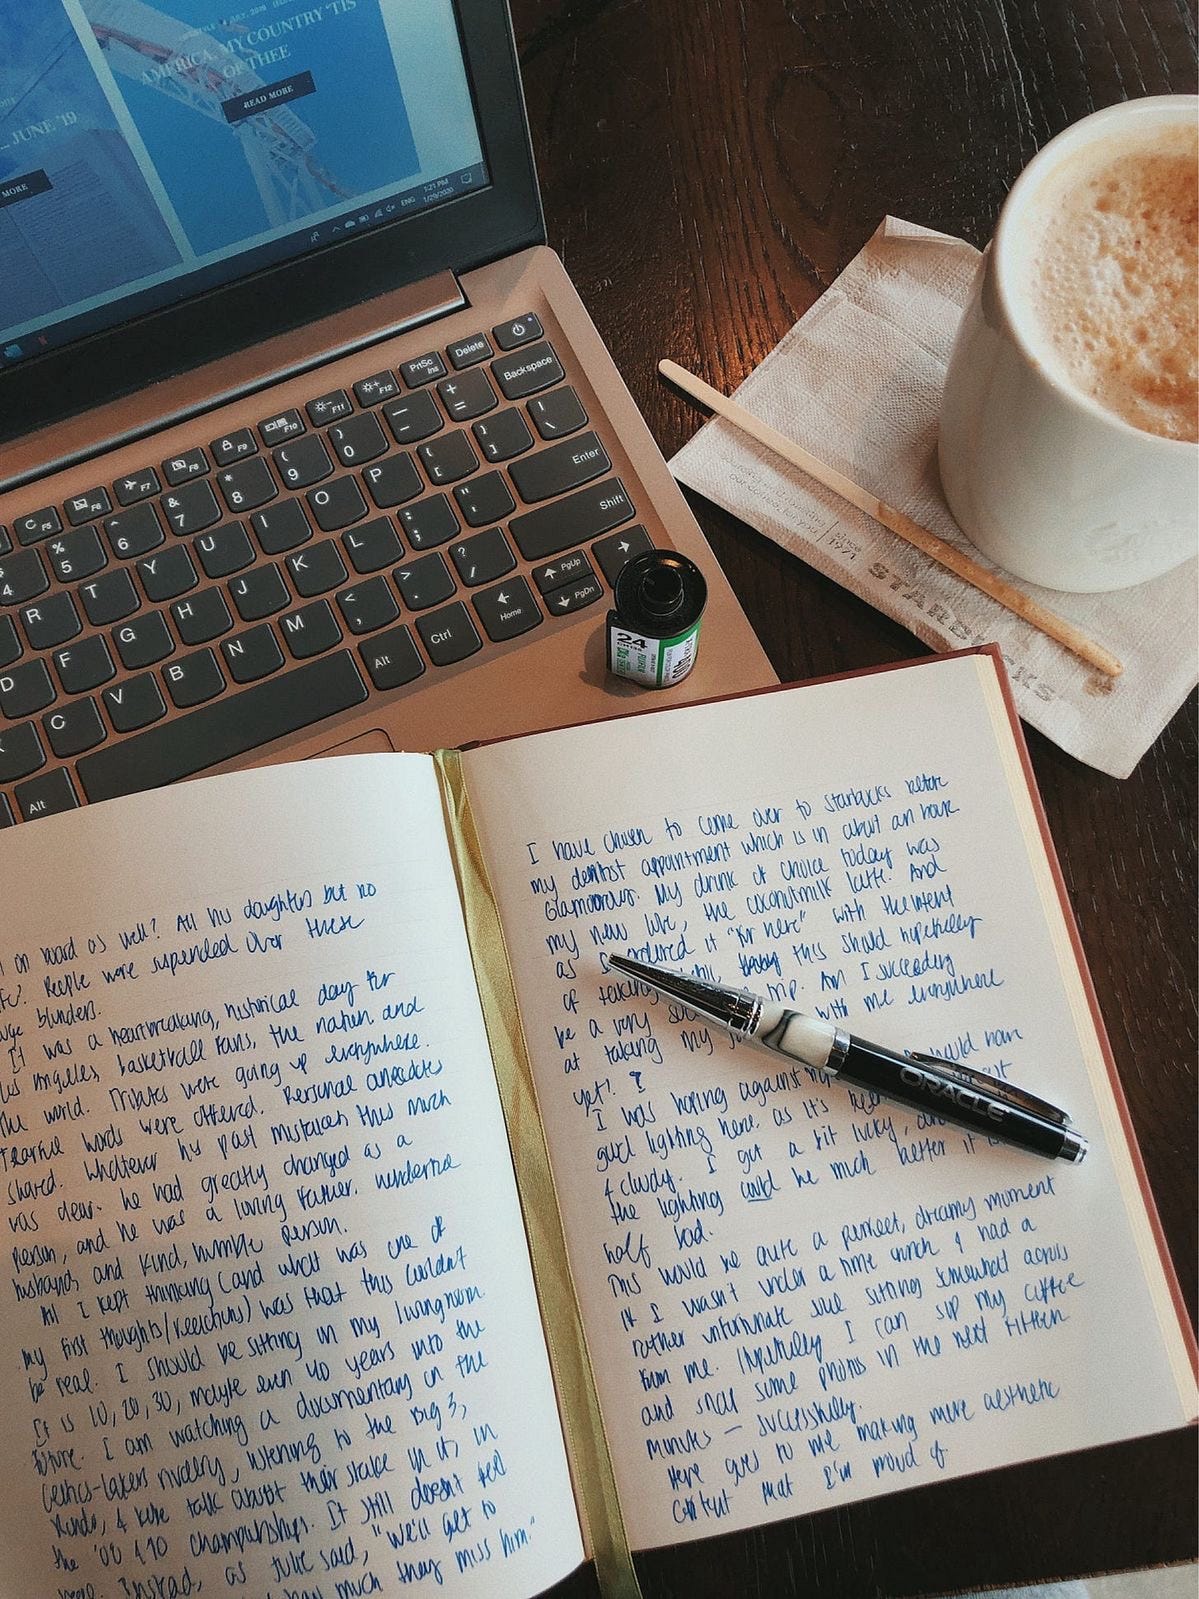 AMERICA, MY COUNTRY 'TIS
OF THEE
READ MORE
JUNE '19
MORE
1:21 PM
1/29/2020
ENG
Delete
PrtSc
Ins
F12
F11
F10
F9
F8
F7
F6
F5
Backspace
+
=
—
-
)
0
(
9
*
8
&
7
^
6
%
5
$
4
|
\
}
]
{
[
P
O
I
U
Y
T
R
Enter
"
'
:
;
L
K
J
H
G
F
D
Shift
?
/
>
.
<
,
M
N
B
V
C
PgUp
PgDn
Home
Ctrl
Alt
Alt
24
STARBUCKS
1971
ORACLE
on board as well? All his daughters but no
? People were suspended over these
huge blunders.
It was a heartbreaking, historical day for
Los Angeles, basketball fans, the nation and
the world. Tributes were going up everywhere.
Tearful words were offered. Personal anecdotes
shared. Whatever his past mistakes, this much
was clear. he had greatly changed as a
person, and he was a loving father, wonderful
husband, and kind, humble person.
All I kept thinking (and what was one of
my first thoughts/reactions) was that this couldn't
be real. I should be sitting in my livingroom.
It is 10, 20, 30, maybe even 40 years into the
future. I am watching a documentary on the
Celtics-Lakers rivalry, listening to the Big 3,
Rondo, & Kobe talk about their stake in it, in
the '08 & '10 championships. It still doesn't feel
Instead, as Jackie said, "we'll get to
how much they miss him."
I have chosen to come over to Starbucks before
my dentist appointment which is in about an hour.
Glamorous. My drink of choice today was
my new love, the coconutmilk latte. And
as I ordered it "for here" with the intent
of taking this should hopefully
be a very trip. Am I succeeding
at taking my with me everywhere
yet?
I was hoping against would have
good lighting here, as it's been
& cloudy. I got a bit lucky,
the lighting could be much better it
half bad.
This would be quite a perfect, dreamy moment
if I wasn't under a time crunch & had a
rather unfortunate soul sitting somewhat across
from me. Hopefully I can sip my coffee
and snap some photos in the next fifteen
minutes — successfully.
Here goes to me making more aesthetic
content that I'm proud of